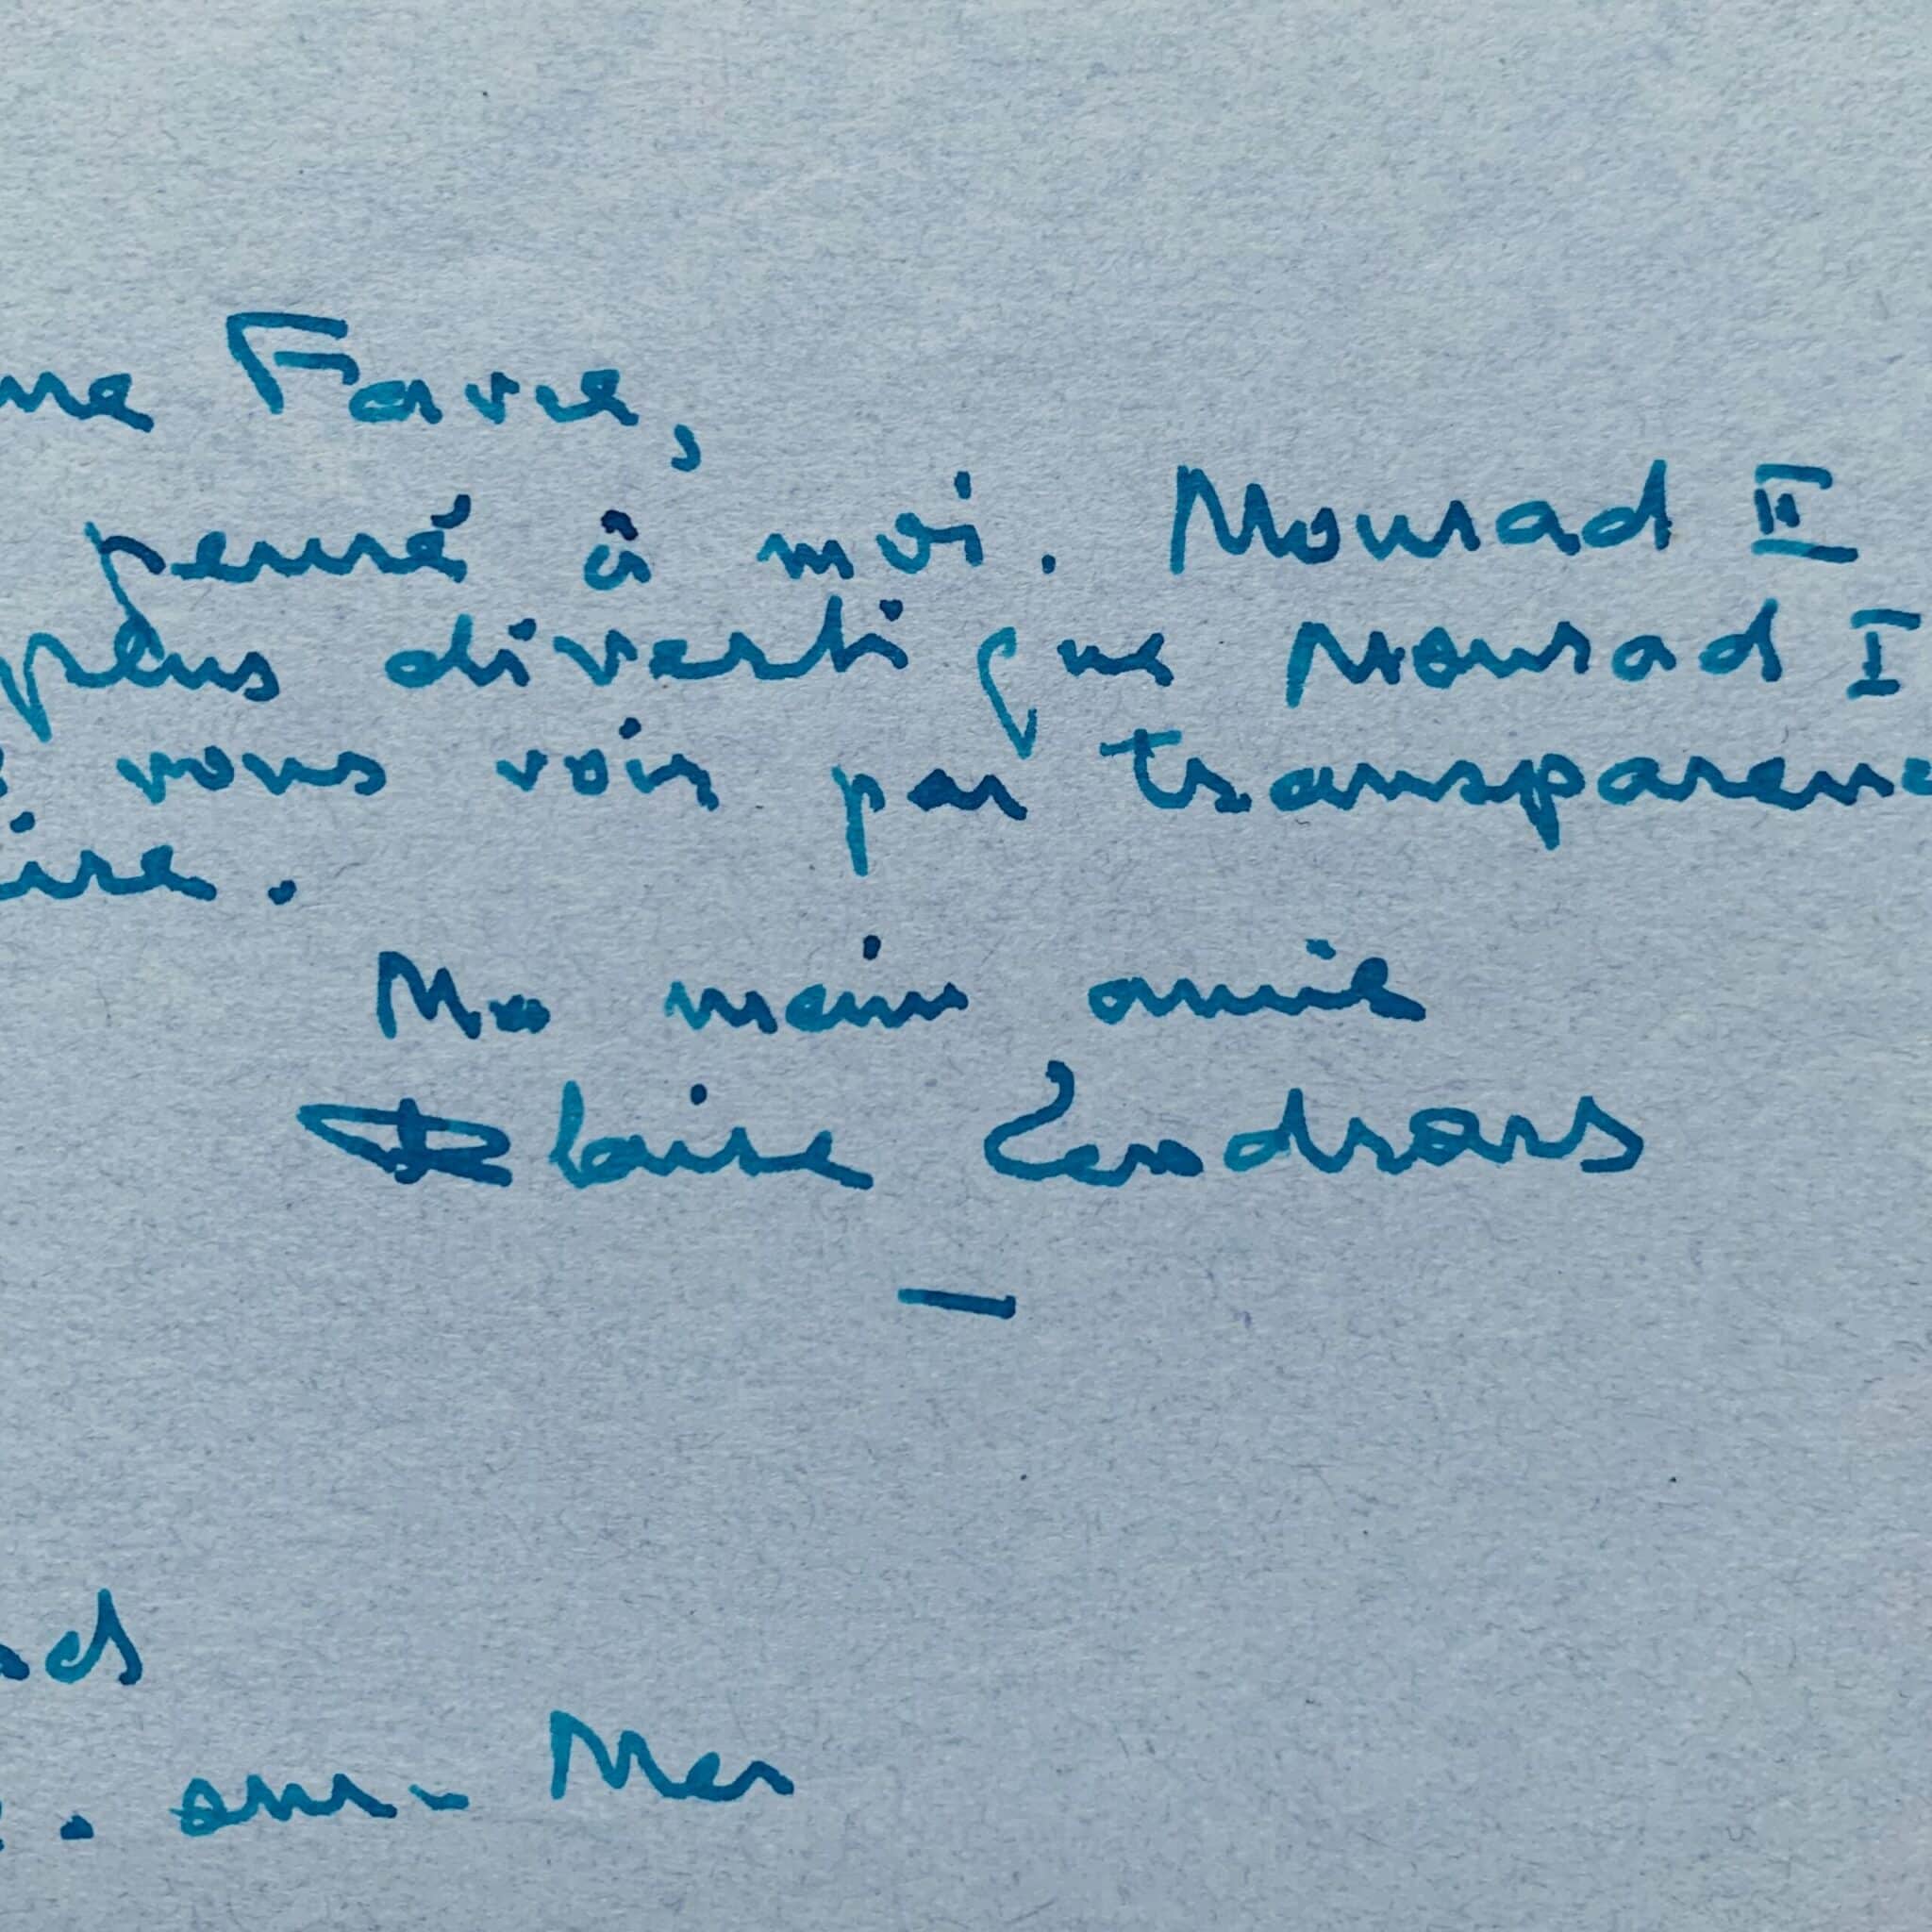 me Favre,
pensé à moi. Mourad II
plus diverti que Mourad I
vous vois par transparenc
ire.
Ma main amie
Blaise Cendrars
—
sur-Mer